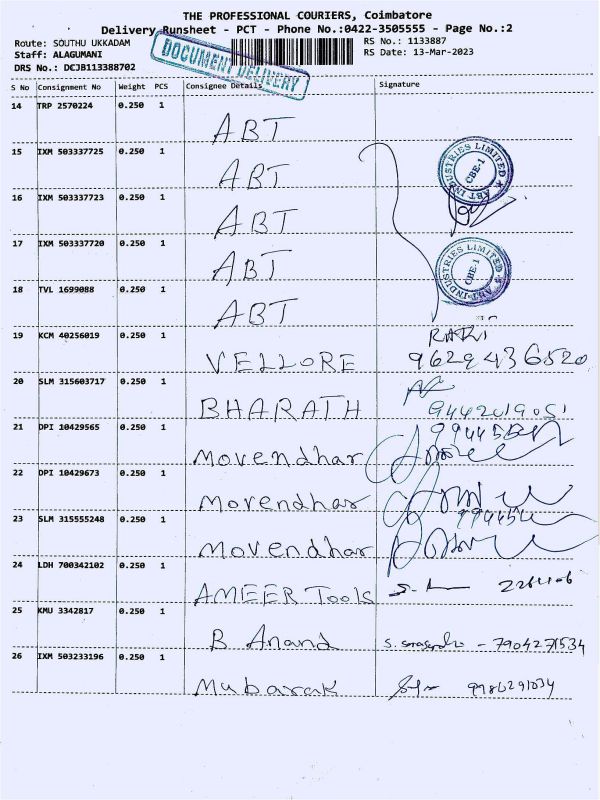 THE PROFESSIONAL COURIERS, Coimbatore
Delivery Runsheet - PCT - Phone No.:0422-3505555 - Page No.:2
Route: SOUTHU UKKADAM
RS No.: 1133887
Staff: ALAGUMANI
RS Date: 13-Mar-2023
DRS No.: DCJB113388702
DOCUMENT DELIVERY
S No Consignment No Weight PCS Consignee Details Signature
14 TRP 2570224 0.250 1
ABT
15 IXM 503337725 0.250 1
ABT
ABT INDUSTRIES LIMITED CBE-1
16 IXM 503337723 0.250 1
ABT
17 IXM 503337720 0.250 1
ABT
ABT INDUSTRIES LIMITED CBE-1
18 TVL 1699088 0.250 1
ABT
19 KCM 40256019 0.250 1
VELLORE 9629436520
20 SLM 315603717 0.250 1
BHARATH 9442019051
21 DPI 10429565 0.250 1
Movendhar
22 DPI 10429673 0.250 1
Movendhar
23 SLM 315555248 0.250 1
Movendhar
24 LDH 700342102 0.250 1
AMEER Tools
25 KMU 3342817 0.250 1
B Anand - 7904271534
26 IXM 503233196 0.250 1
Mubarak